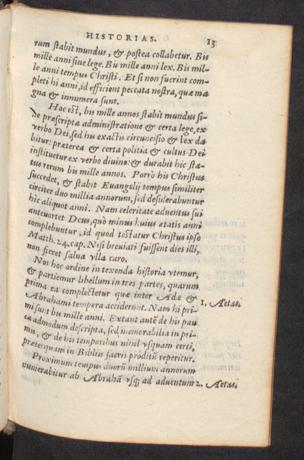 HISTORIAS. 13
rum stabit mundus, & postea collabetur. Bis
mille anni sine lege. Bu mille anni lex. Bis mil-
le anni tempus Christi. Et si non fuerint com-
pleti hi anni, id efficient peccata nostra, quæ ma
gna & innumera sunt.
Hoc est, bis mille annos stabit mundus si-
ne præscripta administratione & certa lege, ex
verbo Dei, sed hu exactis circuncisio & lex da
bitur: præterea & certa politia & cultus Dei
instituetur ex verbo diuino: & durabit hic sta-
tus rerum bis mille annos. Porrò his Christus
succedet, & stabit Euangelij tempus similiter
circiter duo millia annorum, sed desiderabuntur
hic aliquot anni. Nam celeritate aduentus sui
anteuortet Deus, quò minus huius ætatis anni
complebuntur, id quod testatur Christus ipse
Matth. 24. cap. Nisi breuiati fuissent dies illi,
non fieret salua vlla caro.
Nos hoc ordine in texenda historia vtemur,
& partiemur libellum in tres partes, quarum
prima ea complectetur quæ inter Adæ &
Abrahami tempora acciderunt. Nam hi pri-
mi sunt bis mille anni. Extant autē de his pau
ca admodum descripta, sed memorabilia in pri-
mis, & de his temporibus nihil vsquam certi,
præterquam in Biblijs sacris proditū reperitur.
Proximum tempus duorū millium annorum
numerabitur ab Abrahā vsq; ad aduentum
1. Aetas.
2. Aetas.